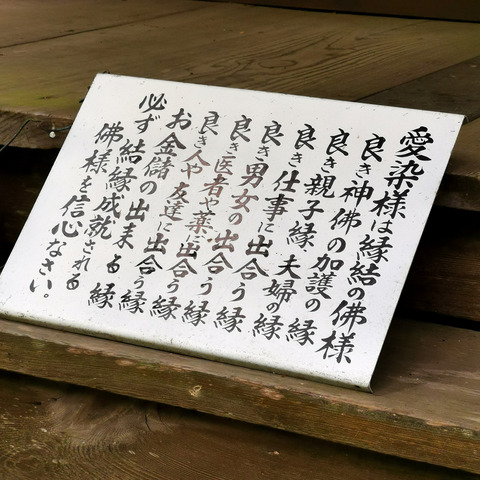 愛染様は縁結の佛様
良き神佛の加護の縁
良き親子縁 夫婦の縁
良き仕事に出合う縁
良き男女の出合う縁
良き医者や薬に出合う縁
良き人や友達に出合う縁
お金儲の出来る縁
必ず結縁成就される
佛様を信心なさい。